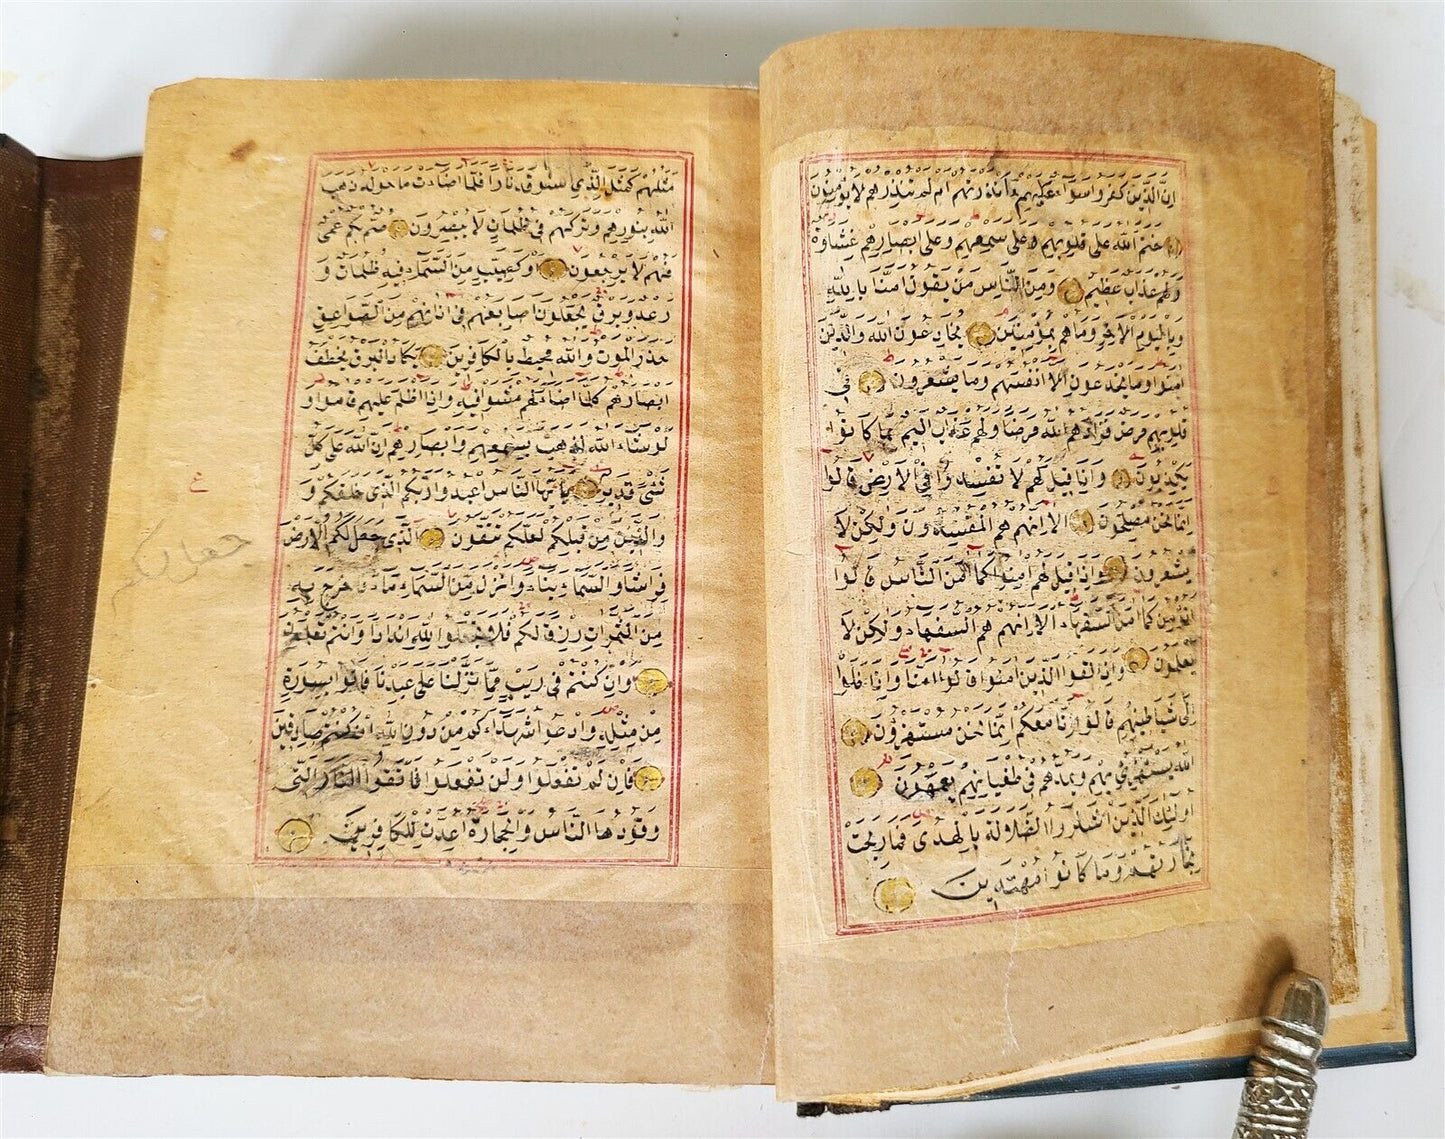 ان الذين كفروا سواء عليهم ءانذرتهم ام لم تنذرهم لا يؤمنون
ختم الله على قلوبهم وعلى سمعهم وعلى ابصارهم غشاوة
ولهم عذاب عظيم ومن الناس من يقول امنا بالله
وباليوم الاخر وما هم بمؤمنين يخادعون الله والذين
امنوا وما يخدعون الا انفسهم وما يشعرون في
قلوبهم مرض فزادهم الله مرضا ولهم عذاب اليم بما كانوا
يكذبون واذا قيل لهم لا تفسدوا في الارض قالوا
انما نحن مصلحون الا انهم هم المفسدون ولكن لا
يشعرون واذا قيل لهم امنوا كما امن الناس قالوا
انؤمن كما امن السفهاء الا انهم هم السفهاء ولكن لا
يعلمون واذا لقوا الذين امنوا قالوا امنا واذا خلوا
الى شياطينهم قالوا انا معكم انما نحن مستهزؤن
الله يستهزئ بهم ويمدهم في طغيانهم يعمهون
اولئك الذين اشتروا الضلالة بالهدى فما ربحت
تجارتهم وما كانوا مهتدين
مثلهم كمثل الذي استوقد نارا فلما اضاءت ما حوله ذهب
الله بنورهم وتركهم في ظلمات لا يبصرون صم بكم عمي
فهم لا يرجعون او كصيب من السماء فيه ظلمات و
رعد وبرق يجعلون اصابعهم في اذانهم من الصواعق
حذر الموت والله محيط بالكافرين يكاد البرق يخطف
ابصارهم كلما اضاء لهم مشوا فيه واذا اظلم عليهم قاموا و
لو شاء الله لذهب بسمعهم وابصارهم ان الله على كل
شئ قدير يا ايها الناس اعبدوا ربكم الذي خلقكم و
والذين من قبلكم لعلكم تتقون الذي جعل لكم الارض
فراشا والسماء بناء وانزل من السماء ماء فاخرج به
من الثمرات رزقا لكم فلا تجعلوا لله اندادا وانتم تعلمون
وان كنتم في ريب مما نزلنا على عبدنا فاتوا بسورة
من مثله وادعوا شهداءكم من دون الله ان كنتم صادقين
فان لم تفعلوا ولن تفعلوا فاتقوا النار التي
وقودها الناس والحجارة اعدت للكافرين
ع
جعل لكم